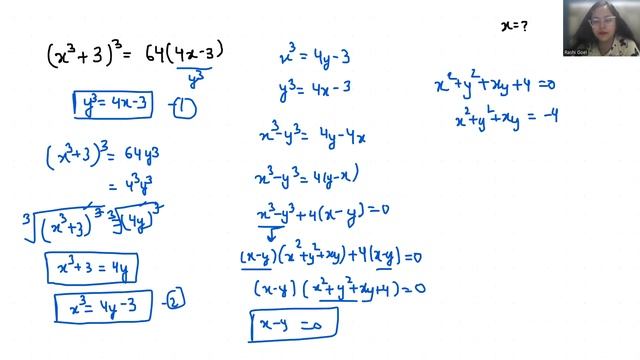 x=?
(x³+3)³ = 64(4x-3)
y³
y³ = 4x-3 -①
(x³+3)³ = 64y³
= 4³y³
³√(x³+3)³ = ³√(4y)³
x³+3 = 4y
x³ = 4y-3 -②
x³ = 4y-3
y³ = 4x-3
x³-y³ = 4y-4x
x³-y³ = 4(y-x)
x³-y³+4(x-y)=0
(x-y)(x²+y²+xy)+4(x-y)=0
(x-y)(x²+y²+xy+4)=0
x-y =0
x²+y²+xy+4=0
x²+y²+xy = -4
Rashi Goel